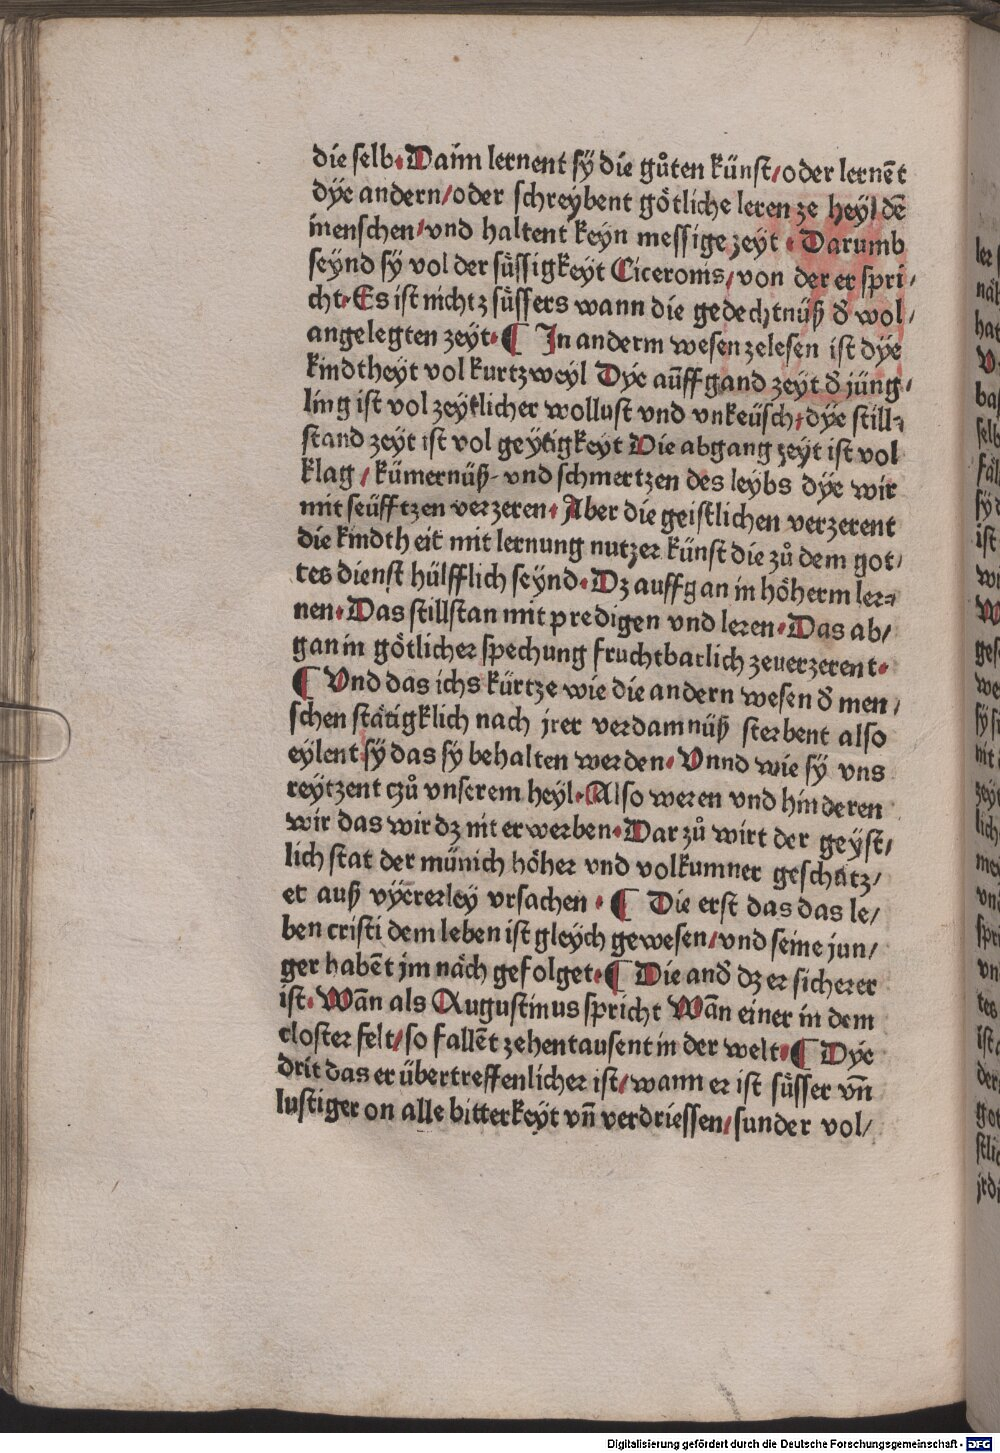 die selb. Dann lernent sÿ die gůten künst/oder lernēt
dÿe andern/oder schreybent götliche leren ze heyl dē
menschen/vnd haltent keyn messige zeyt. Darumb
seynd sÿ vol der süssigkeyt Ciceronis/von der er spri/
cht. Es ist nichtz süssers wann die gedechtnüß đ wol/
angelegten zeyt. ¶ In anderm wesen zelesen ist dÿe
kindtheyt vol kurtzweyl Dÿe auffgand zeyt đ jüng/
ling ist vol zeytlicher wollust vnd vnkeüsch/dÿe still⸗
stand zeyt ist vol geytigkeyt Die abgang zeyt ist vol
klag/kümernüß vnd schmertzen des leybs dÿe wir
mit seüfftzen verzeren. Aber die geistlichen verzerent
die kindtheit mit lernung nutzer künst die zů dem got/
tes dienst hülfflich seynd. Dz auffgan in höherm ler⸗
nen. Das stillstan mit predigen vnd leren. Das ab/
gan in götlicher spechung fruchtbarlich zeuerzerent.
¶ Vnd das ichs kürtze wie die andern wesen đ men/
schen stätigklich nach jrer verdamnüß sterbent also
eylent sÿ das sÿ behalten werden. Vnnd wie sÿ vns
reytzent czů vnserem heyl. Also weren vnd hinderen
wir das wir dz nit erwerben. Darzů wirt der geyst/
lich stat der münich höher vnd volkumner geschätz/
et auß vÿererley vrsachen. ¶ Die erst das das le/
ben cristi dem leben ist gleych gewesen/vnd seine jun/
ger habēt jm näch gefolget. ¶ Die anđ dz er sicherer
ist. Wān als Augustinus spricht Wān einer in dem
closter felt/so fallēt zehentausent in der welt. ¶ Dÿe
drit das er übertreffenlicher ist/wann er ist süsser vn̄
lustiger on alle bitterkeyt vn̄ verdriessen/sunder vol/
Digitalisierung gefördert durch die Deutsche Forschungsgemeinschaft - DFG